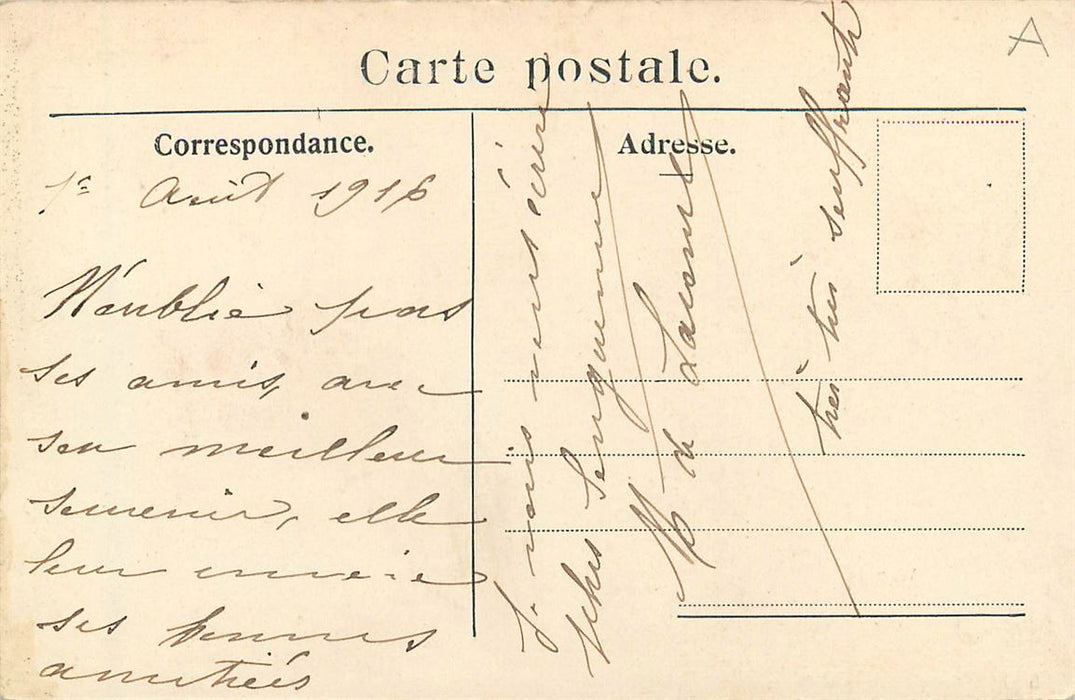 Carte postale.
Correspondance.
Adresse.
1er Août 1916
N'oublie pas
ses amis, avec
son meilleur
souvenir, elle
leur envoie
ses bonnes
amitiés
Je vais vous écrire
plus longuement
M de
très très souffrante